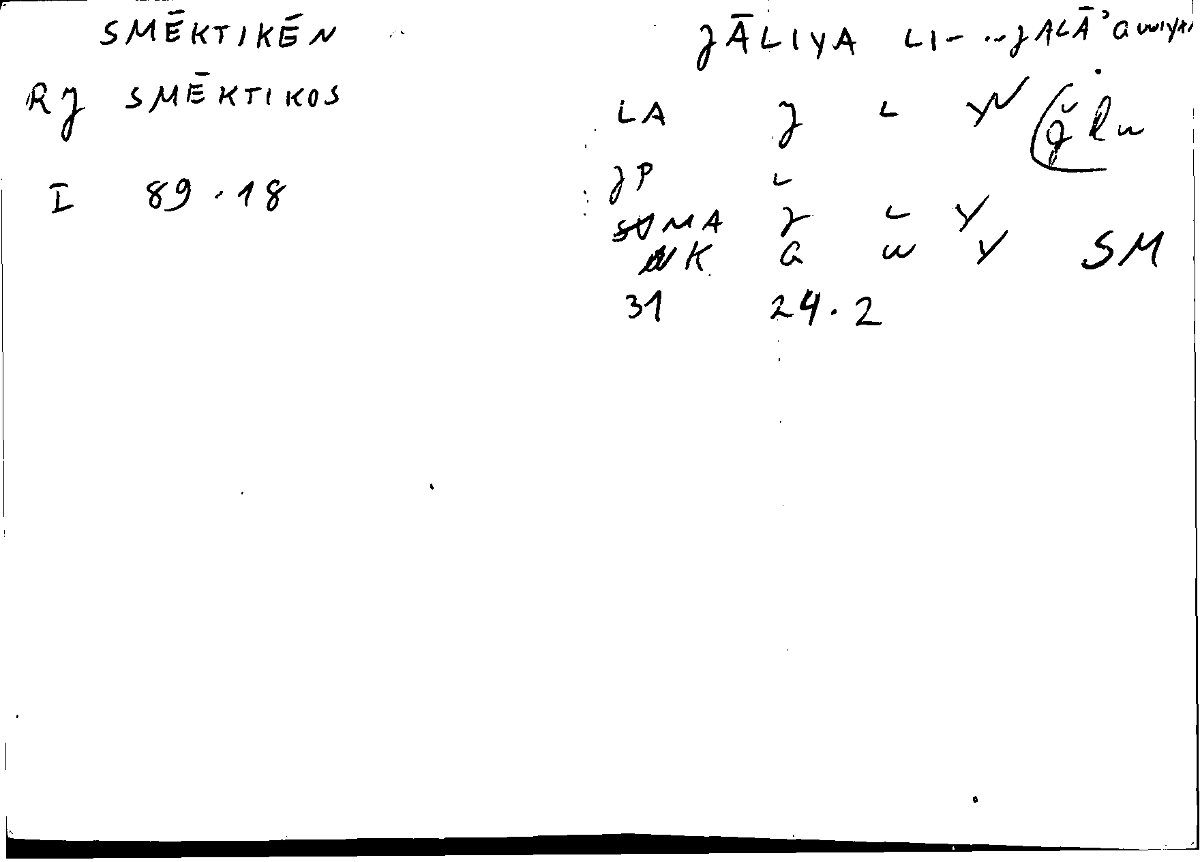 SMĒKTIKĒN
RJ SMĒKTIKOS
I 89.18
JĀLIYA LI- ..JALĀʾ
LA J L Y (ǧ l w
JP L
MA J L Y
K G W Y SM
31 24.2